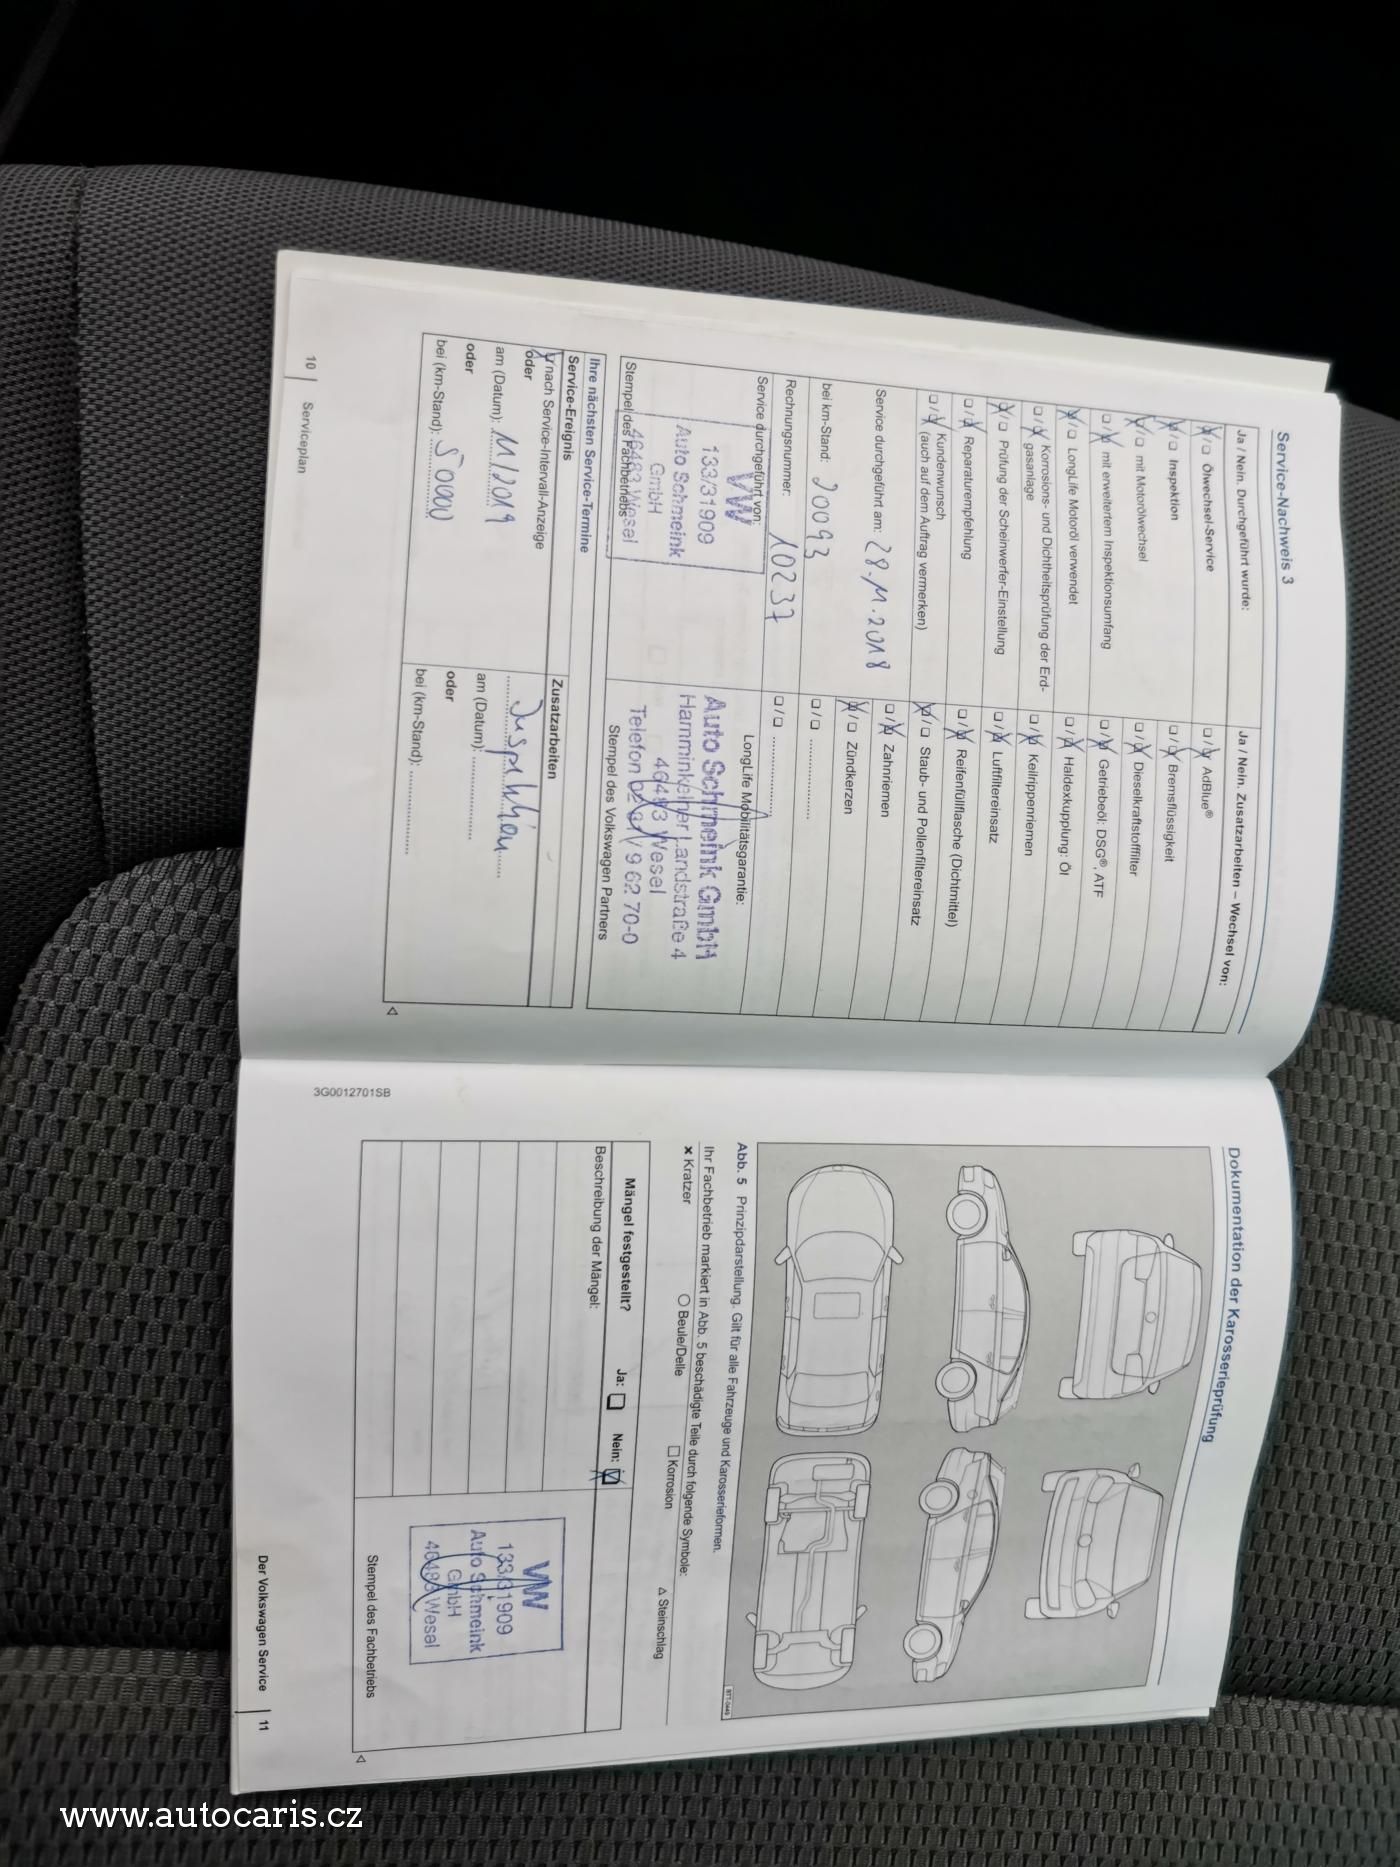 Service-Nachweis 3
Ja / Nein. Durchgeführt wurde:
☒ / ☐ Ölwechsel-Service
☒ / ☐ Inspektion
☒ / ☐ mit Motorölwechsel
☐ / ☒ mit erweitertem Inspektionsumfang
☒ / ☐ LongLife Motoröl verwendet
☐ / ☒ Korrosions- und Dichtheitsprüfung der Erd-
gasanlage
☒ / ☐ Prüfung der Scheinwerfer-Einstellung
☐ / ☒ Reparaturempfehlung
☐ / ☒ Kundenwunsch
(auch auf dem Auftrag vermerken)
Service durchgeführt am: 28.11.2018
bei km-Stand: 20093
Rechnungsnummer: 10237
Service durchgeführt von:
VW
133/31909
Auto Schmeink
GmbH
46483 Wesel
Stempel des Fachbetriebs
Ja / Nein. Zusatzarbeiten – Wechsel von:
☐ / ☒ AdBlue®
☐ / ☒ Bremsflüssigkeit
☐ / ☒ Dieselkraftstofffilter
☐ / ☒ Getriebeöl: DSG®, ATF
☐ / ☒ Haldexkupplung: Öl
☐ / ☒ Keilrippenriemen
☐ / ☒ Luftfiltereinsatz
☐ / ☒ Reifenfüllflasche (Dichtmittel)
☒ / ☐ Staub- und Pollenfiltereinsatz
☐ / ☒ Zahnriemen
☒ / ☐ Zündkerzen
☐ / ☐ ....................
☐ / ☐ ....................
LongLife Mobilitätsgarantie:
Auto Schmeink GmbH
Hamminkelner Landstraße 4
46483 Wesel
Telefon 0281 / 9 62 70-0
Stempel des Volkswagen Partners
Ihre nächsten Service-Termine
Service-Ereignis
☒ nach Service-Intervall-Anzeige
oder
am (Datum): 11/2019
oder
bei (km-Stand): 50000
Zusatzarbeiten
Inspektion
am (Datum): ....................
oder
bei (km-Stand): ....................
10 | Serviceplan
3G0012701SB
Dokumentation der Karosserieprüfung
BTT-0449
Abb. 5 Prinzipdarstellung. Gilt für alle Fahrzeuge und Karosserieformen.
Ihr Fachbetrieb markiert in Abb. 5 beschädigte Teile durch folgende Symbole:
✖ Kratzer ○ Beule/Delle ☐ Korrosion Δ Steinschlag
Mängel festgestellt? Ja: ☐ Nein: ☒
Beschreibung der Mängel:
VW
133/31909
Auto Schmeink
GmbH
46483 Wesel
Stempel des Fachbetriebs
Der Volkswagen Service | 11
www.autocaris.cz